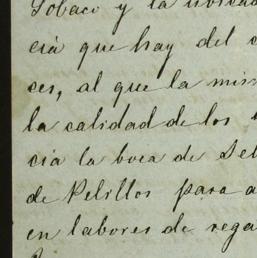 Tobaco y la
cia que hay del
ces, al que la mis
la calidad de los
cia la boca de
de Pelillos para a
en labores de rega